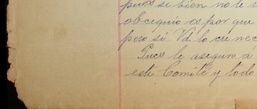 pues si bien no le s
obsequio es por que
pero si Vd lo cu nec
Pues le aseguro á
este Comité y todo